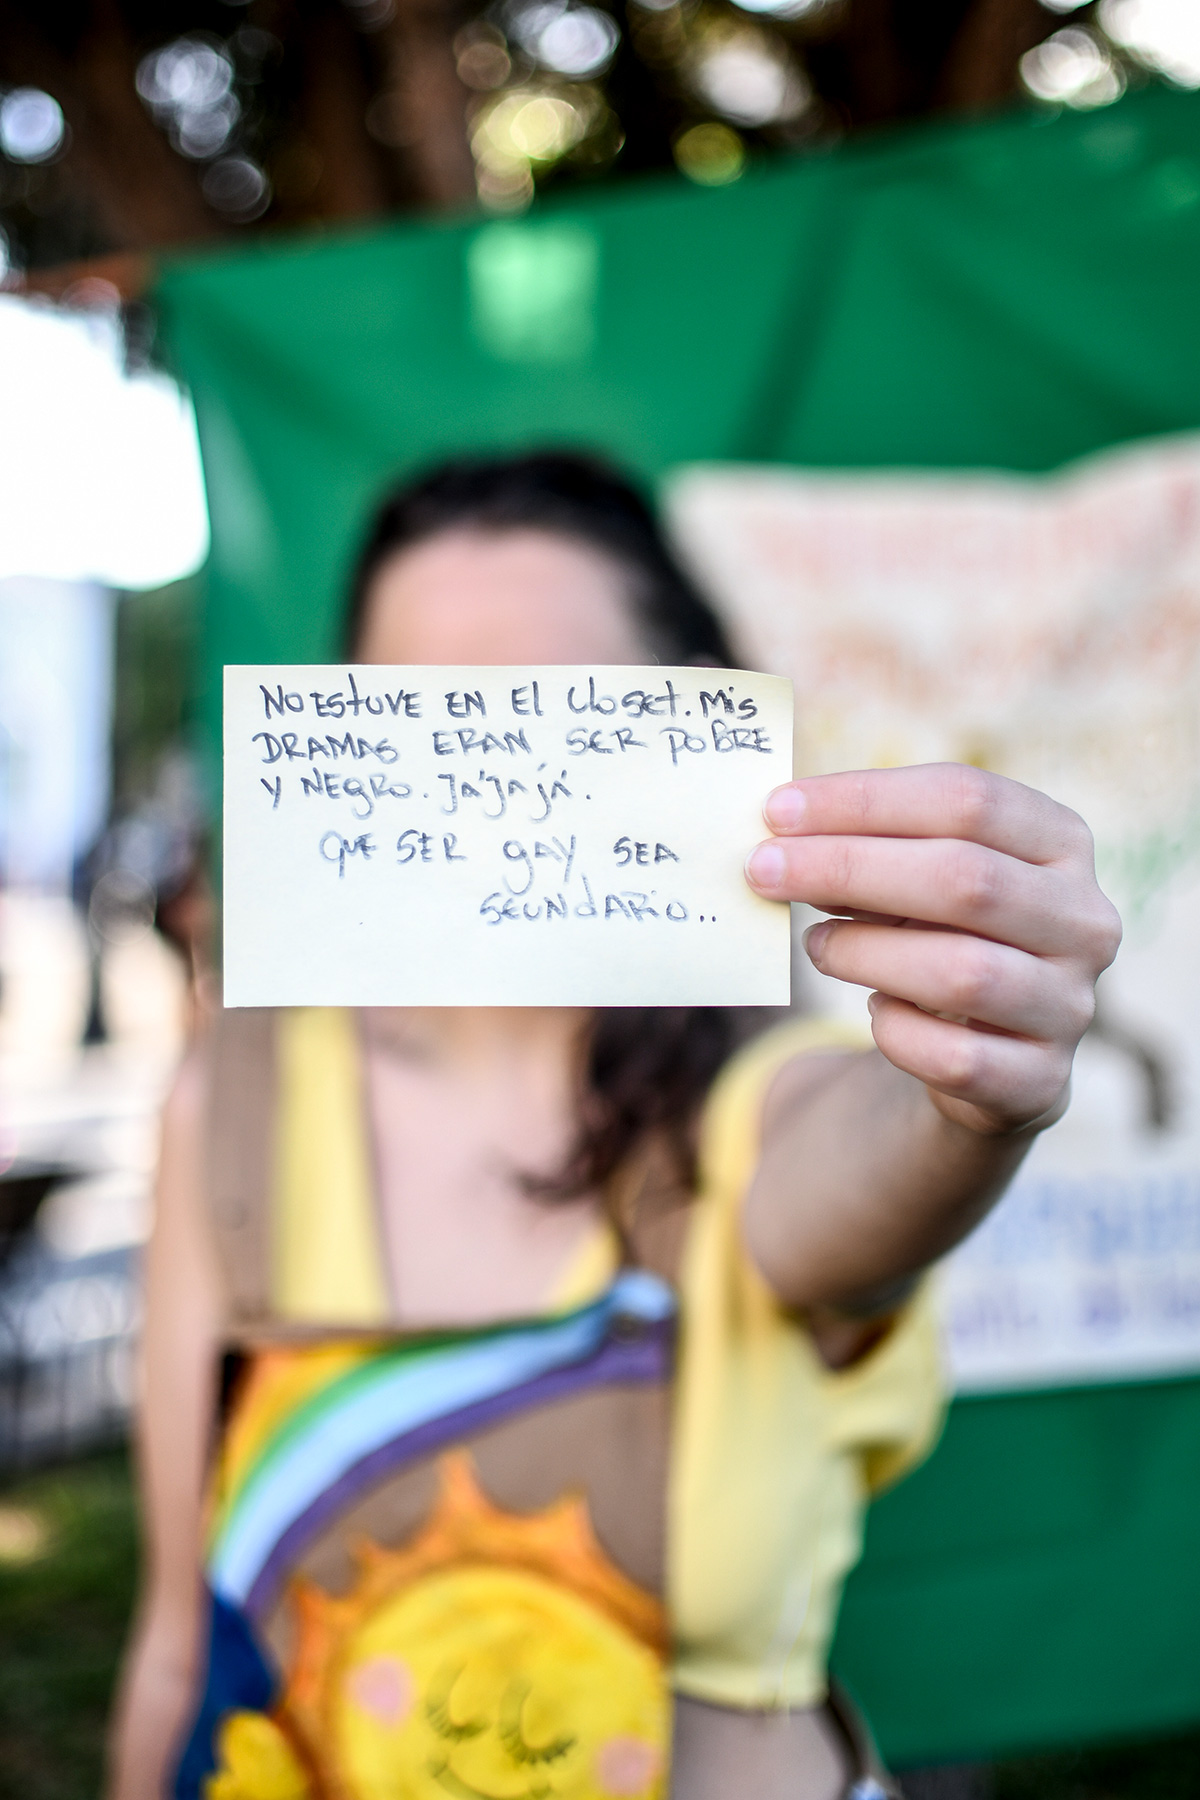 NO ESTUVE EN El Closet. Mis
DRAMAS ERAN SER POBRE
Y NEGRO. JÁ'JAJÁ.
QUE SER gAY SEA
SECUNdARiO..